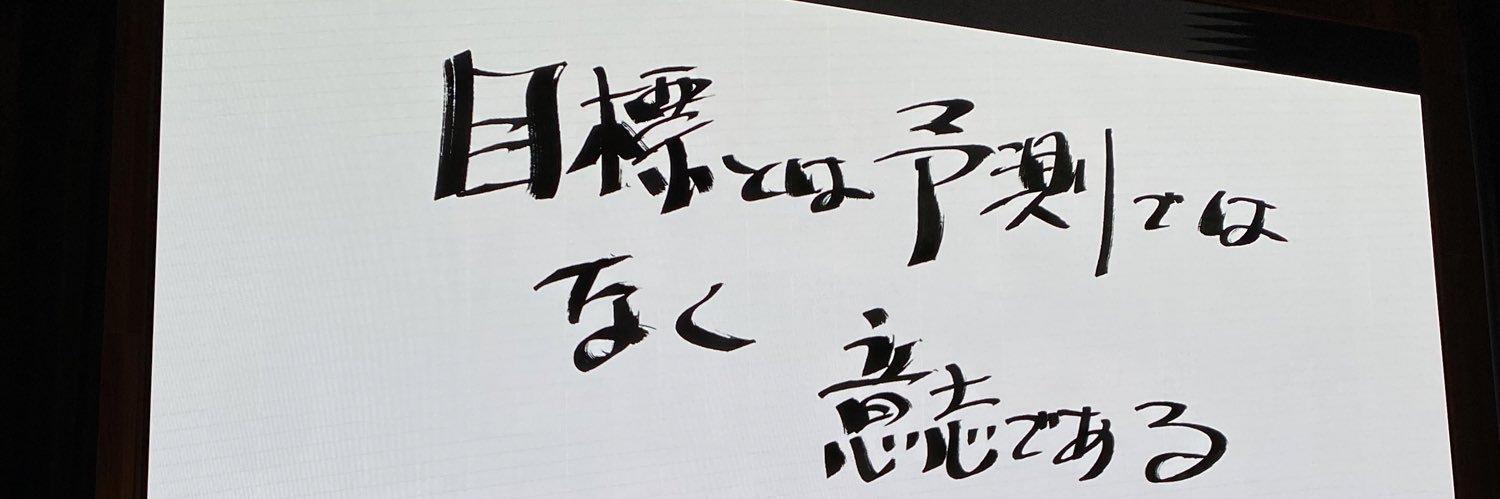 目標とは予測では
なく
意志である